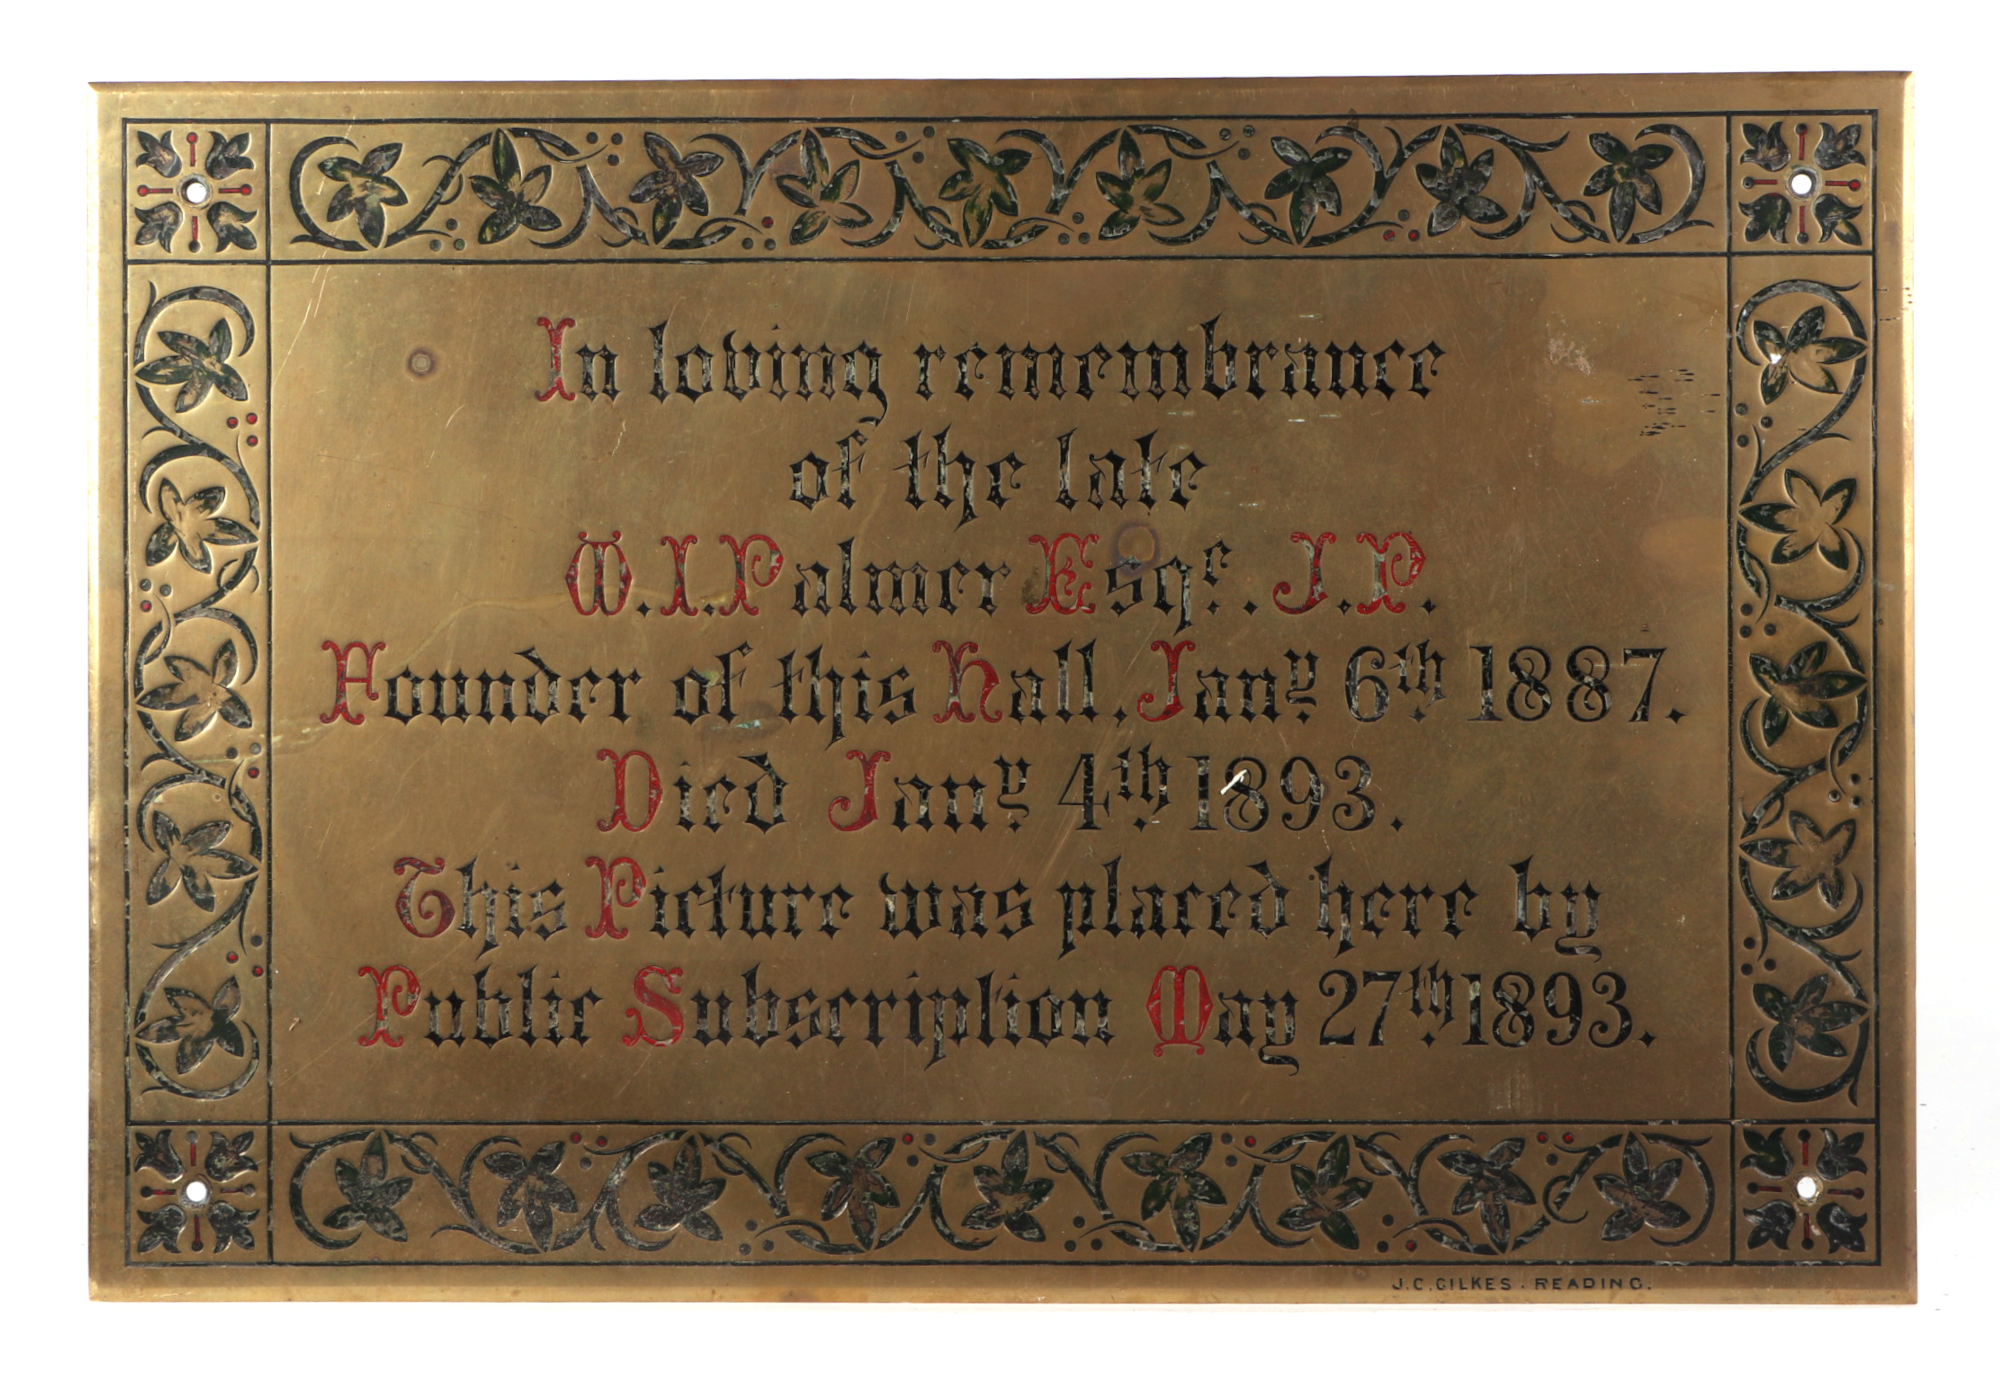 In loving remembrance
of the late
W. I. Palmer Esqre. J.P.
Founder of this Hall, Jany. 6th 1887.
Died Jany. 4th 1893.
This Picture was placed here by
Public Subscription May 27th 1893.
J.C. GILKES. READING.